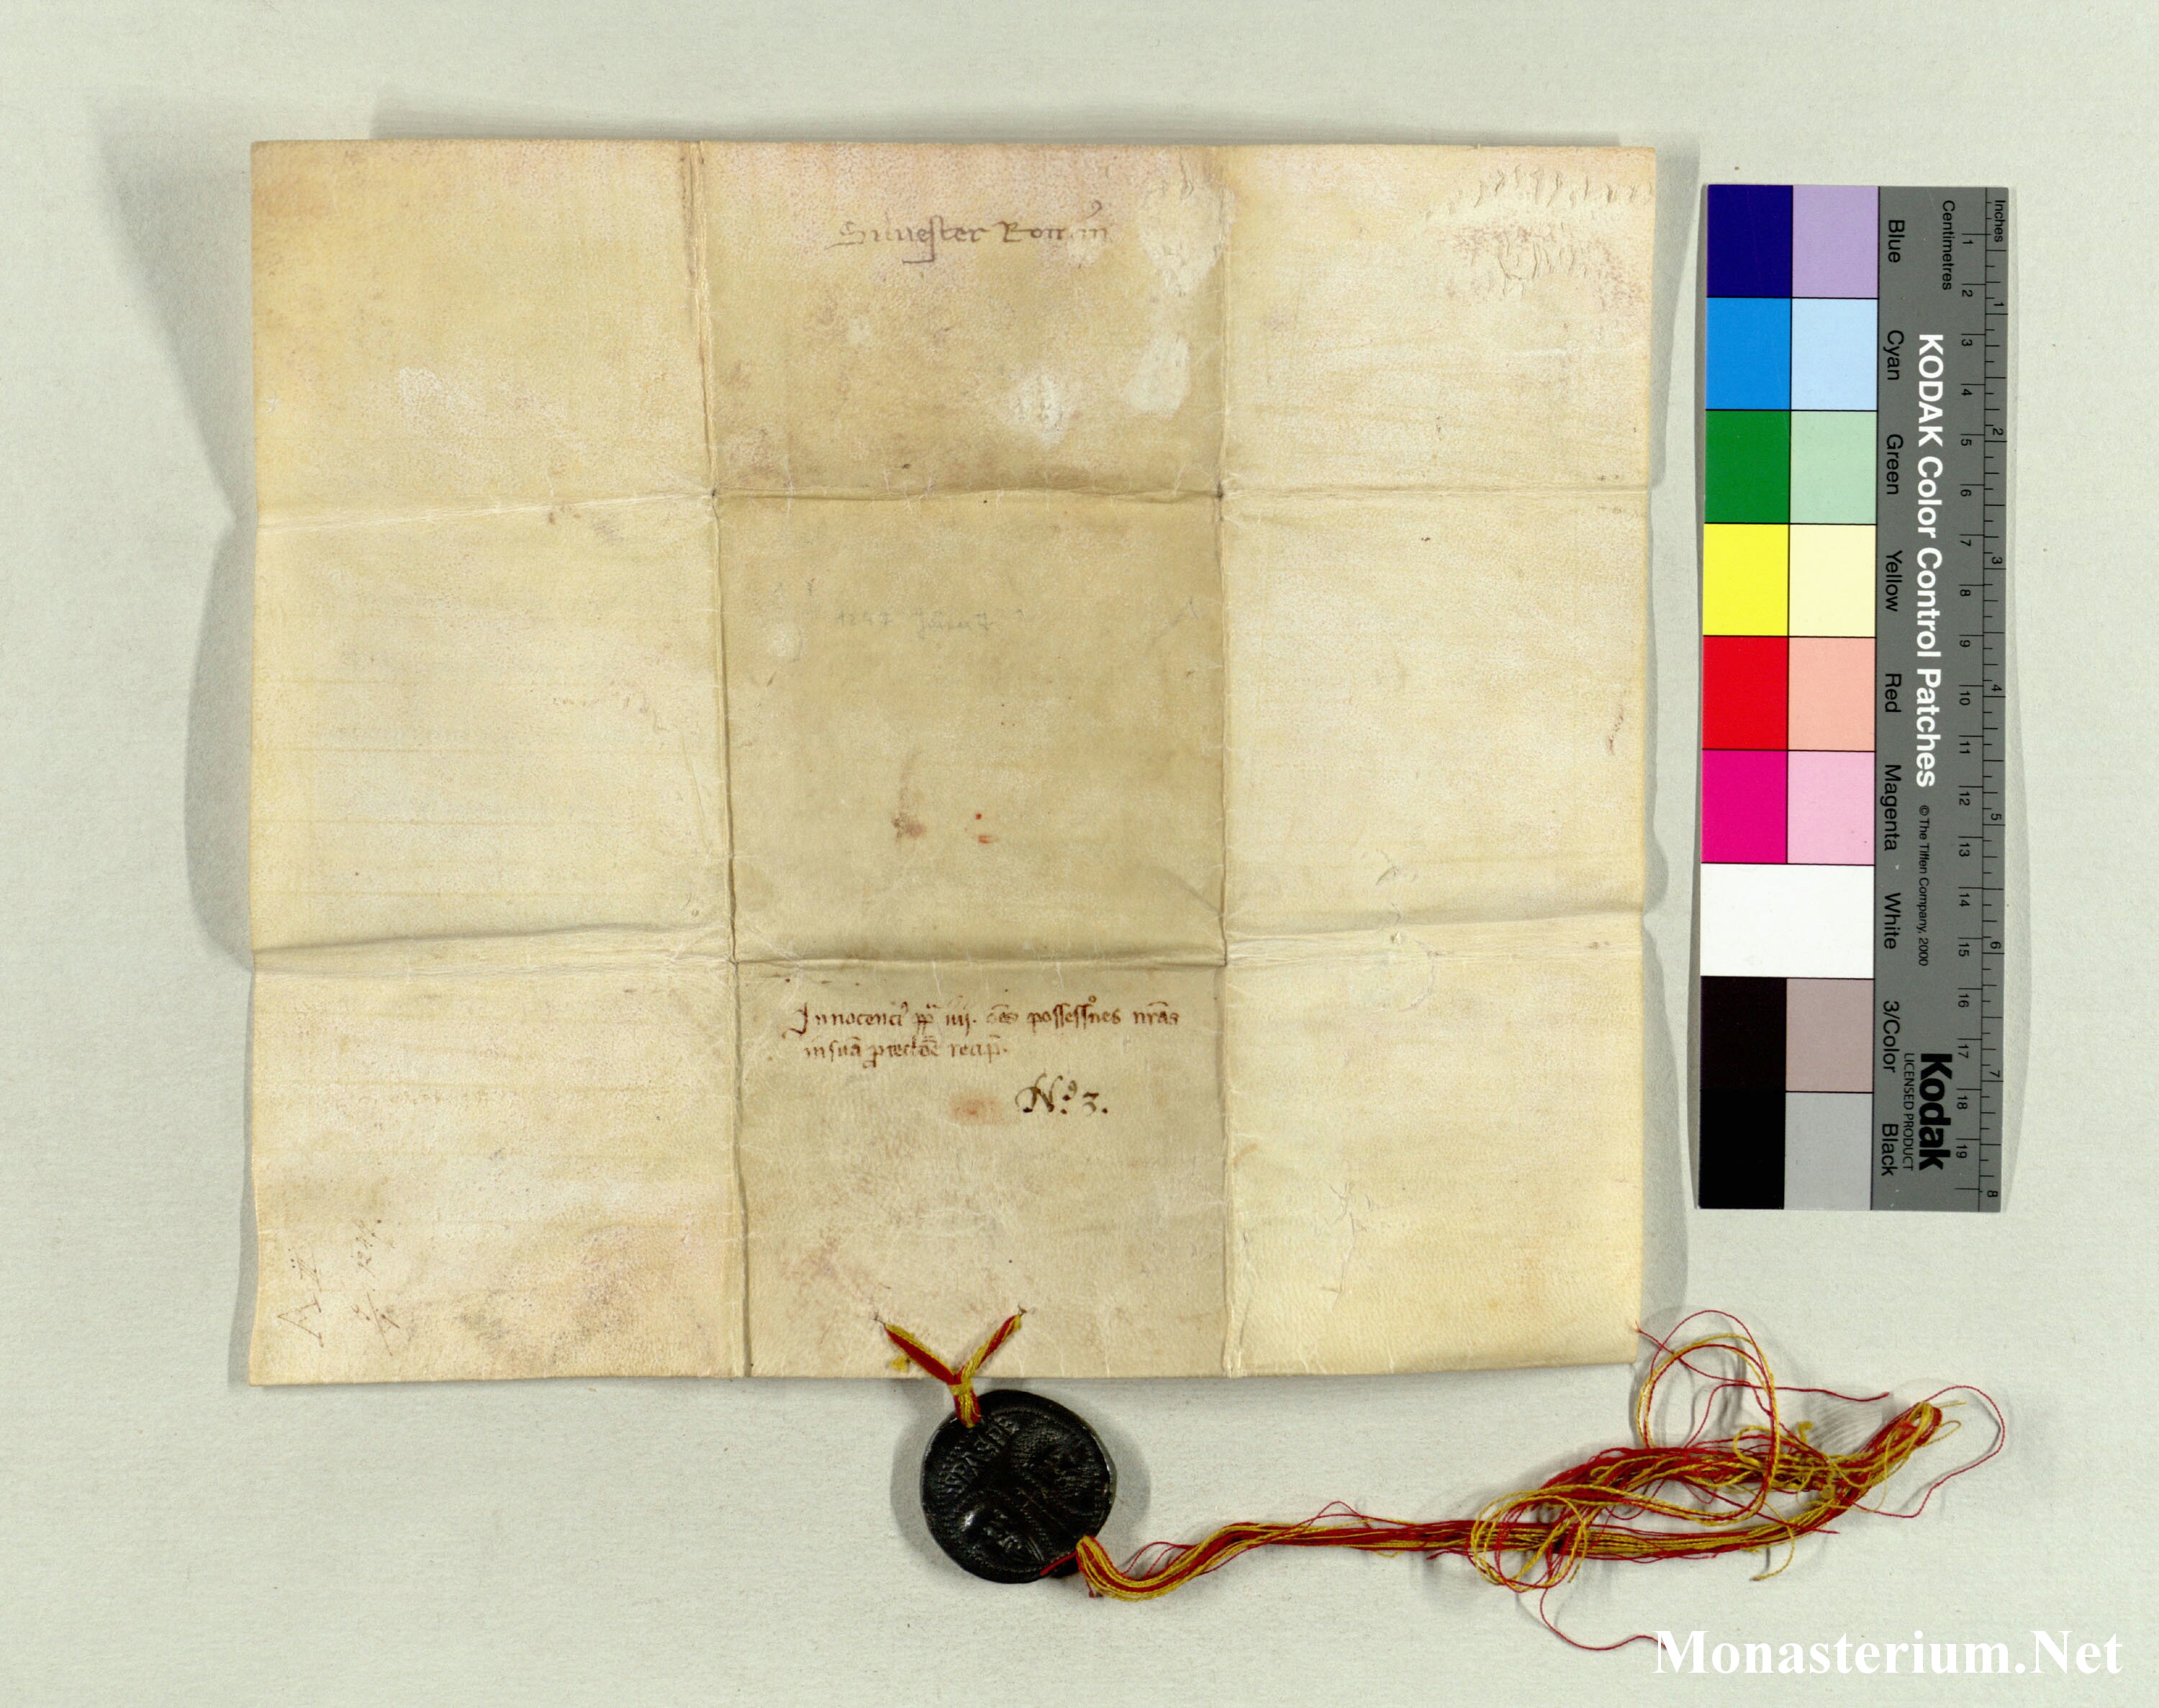 Siluester Roman᾿
1247 Juni 7
Innocenci᾿ pp̄ iiij. ōēs possessiōnes nr̄as
in suā ꝓtectōē recip̄.
N:º 3.
SPASPE
Inches
Centimetres
1 2 3 4 5 6 7 8 9 10 11 12 13 14 15 16 17 18 19
1 2 3 4 5 6 7 8
Blue Cyan Green Yellow Red Magenta White 3/Color Black
KODAK Color Control Patches © The Tiffen Company, 2000 Kodak
LICENSED PRODUCT
Monasterium.Net